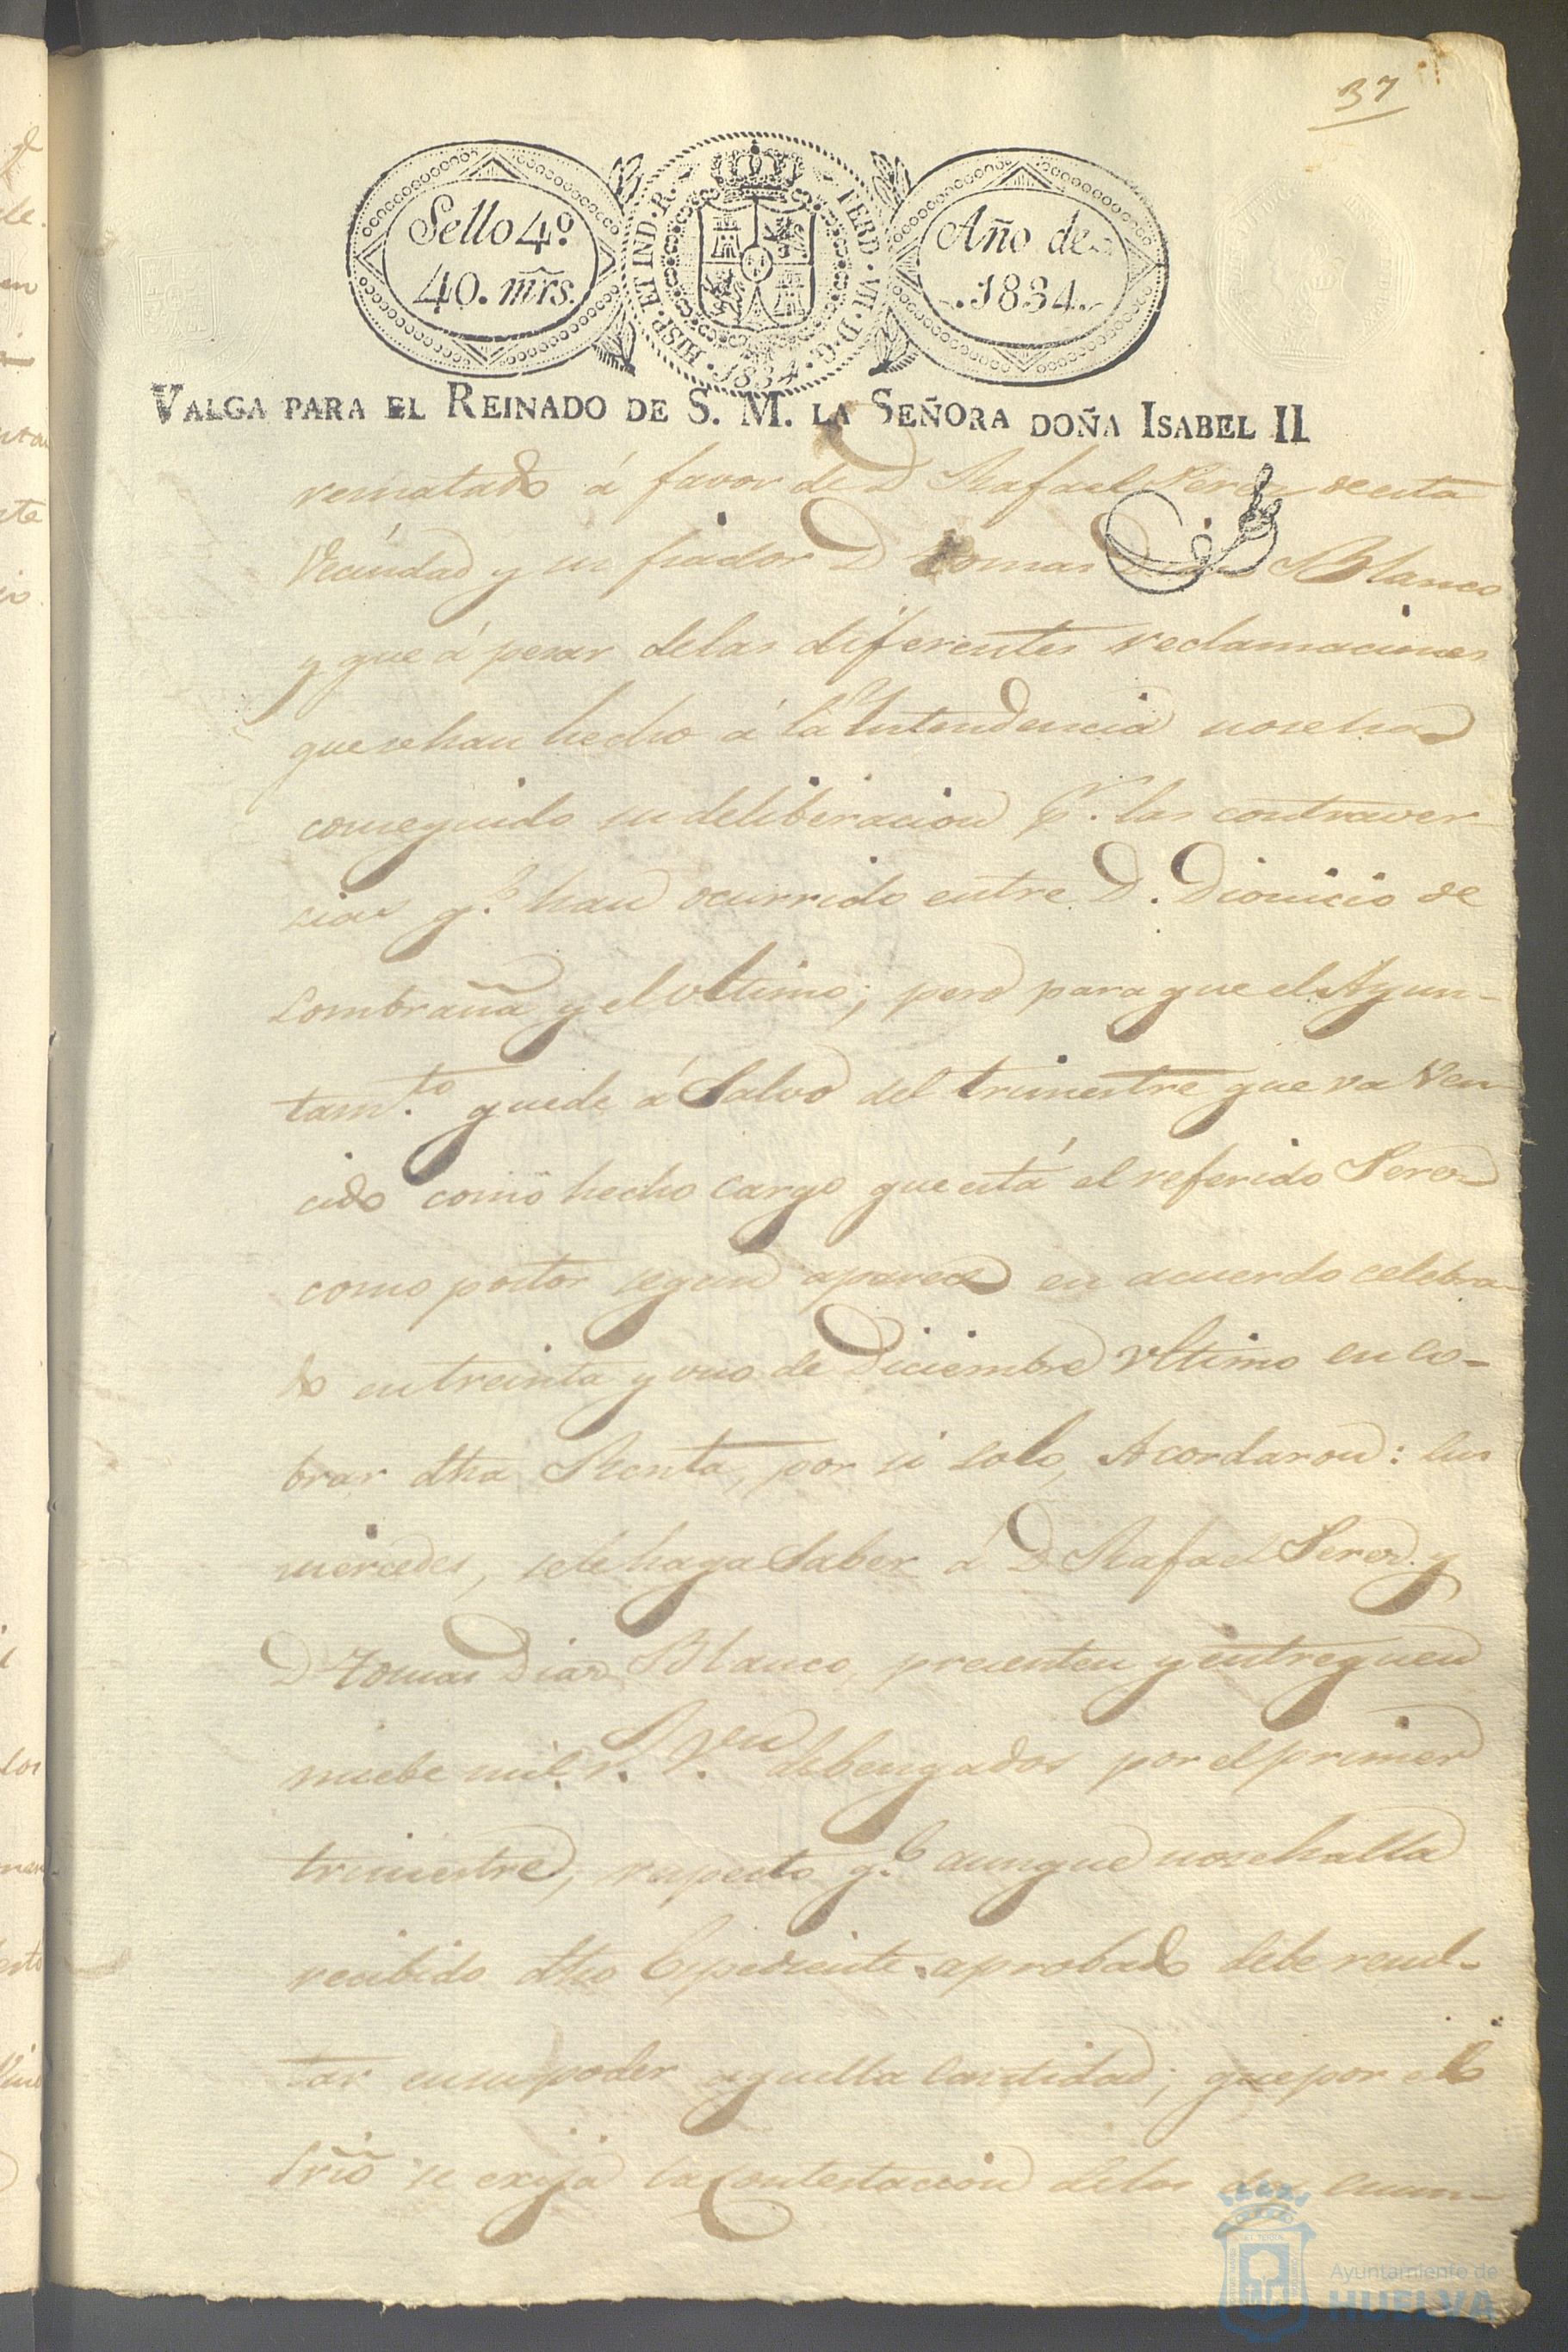 37
Sello 4º
40. mrs.
HISP. ET IND. R.
FERD. VII. D. G.
1834
Año de
1834
VALGA PARA EL REINADO DE S. M. LA SEÑORA DOÑA ISABEL II
rematado á favor de D Rafael Perez de esta
Vecindad y su fiador D Tomas Diaz Blanco
y que á pesar delas diferentes reclamaciones
que se han hecho á la Intendencia no se ha
conseguido su deliberacion pr. las contraver
cias qe. han ocurrido entre D. Dionicio de
Lombraña y el ultimo; pero para que el Ayun-
tamto. quede á Salvo del trimestre que va Ven
cido como hecho Cargo que está el referido Perez
como postor segun aparece en acuerdo celebra-
do en treinta y uno de Diciembre ultimo en co-
brar dha Renta, por si solo, Acordaron: sus
mercedes, sele haga Saber á D Rafael Perez y
D Tomas Diaz Blanco, precenten y entreguen
nuebe mil rs. Von debengados por el primer
trimestre, respecto qe. aunque nose halla
recibido dho Espediente aprobado debe resul-
tar en su poder aquella Cantidad; que por el
Srio se exija la Contestacion delos dos enun-
Ayuntamiento de
HUELVA